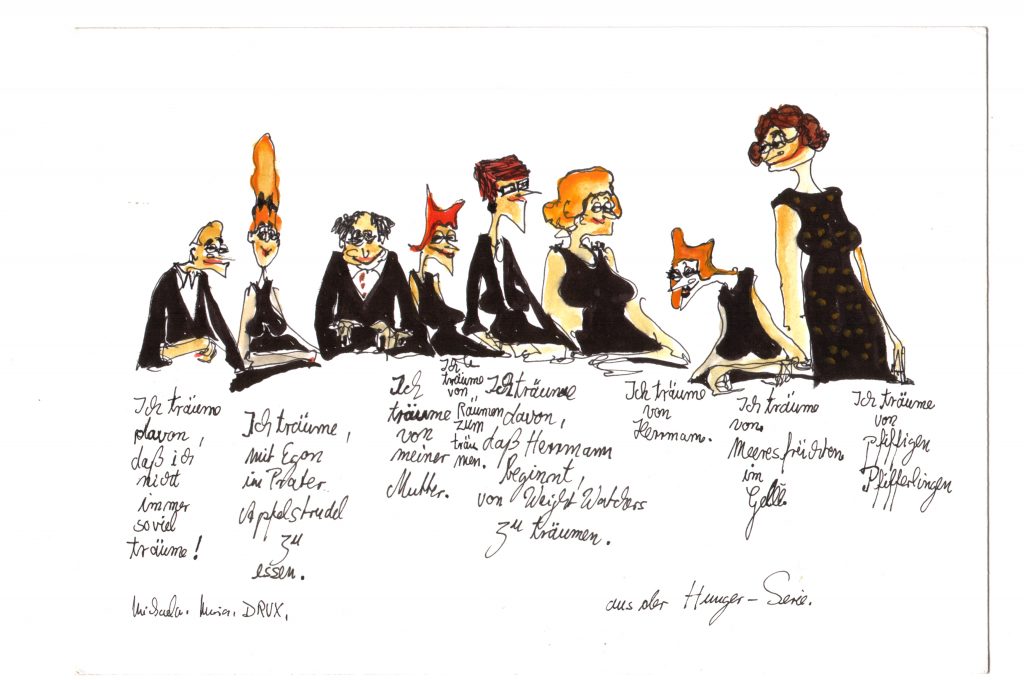 Ich träume
davon,
daß ich
nicht
immer
so viel
träume!
Ich träume,
mit Egon
im Prater
Apfelstrudel
zu
essen.
Ich
träume
von
meiner
Mutter.
Ich
träume
von
Räumen
zum
träu
men.
Ich träume
davon,
daß Herrmann
beginnt,
von Weight Watchers
zu träumen.
Ich träume
von
Herrmann.
Ich träume
von
Meeresfrüchten
im
Geleé.
Ich träume
von
pfiffigen
Pfifferlingen
Michaela. Maria. DRUX.
aus der Hunger-Serie.